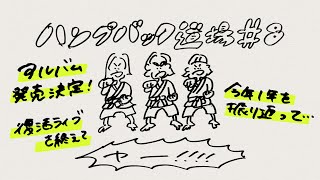 ハンブバック道場#8
アルバム
発売決定!
復活ライブ
を終えて
今年1年を
振り返って…
ヤー!!!